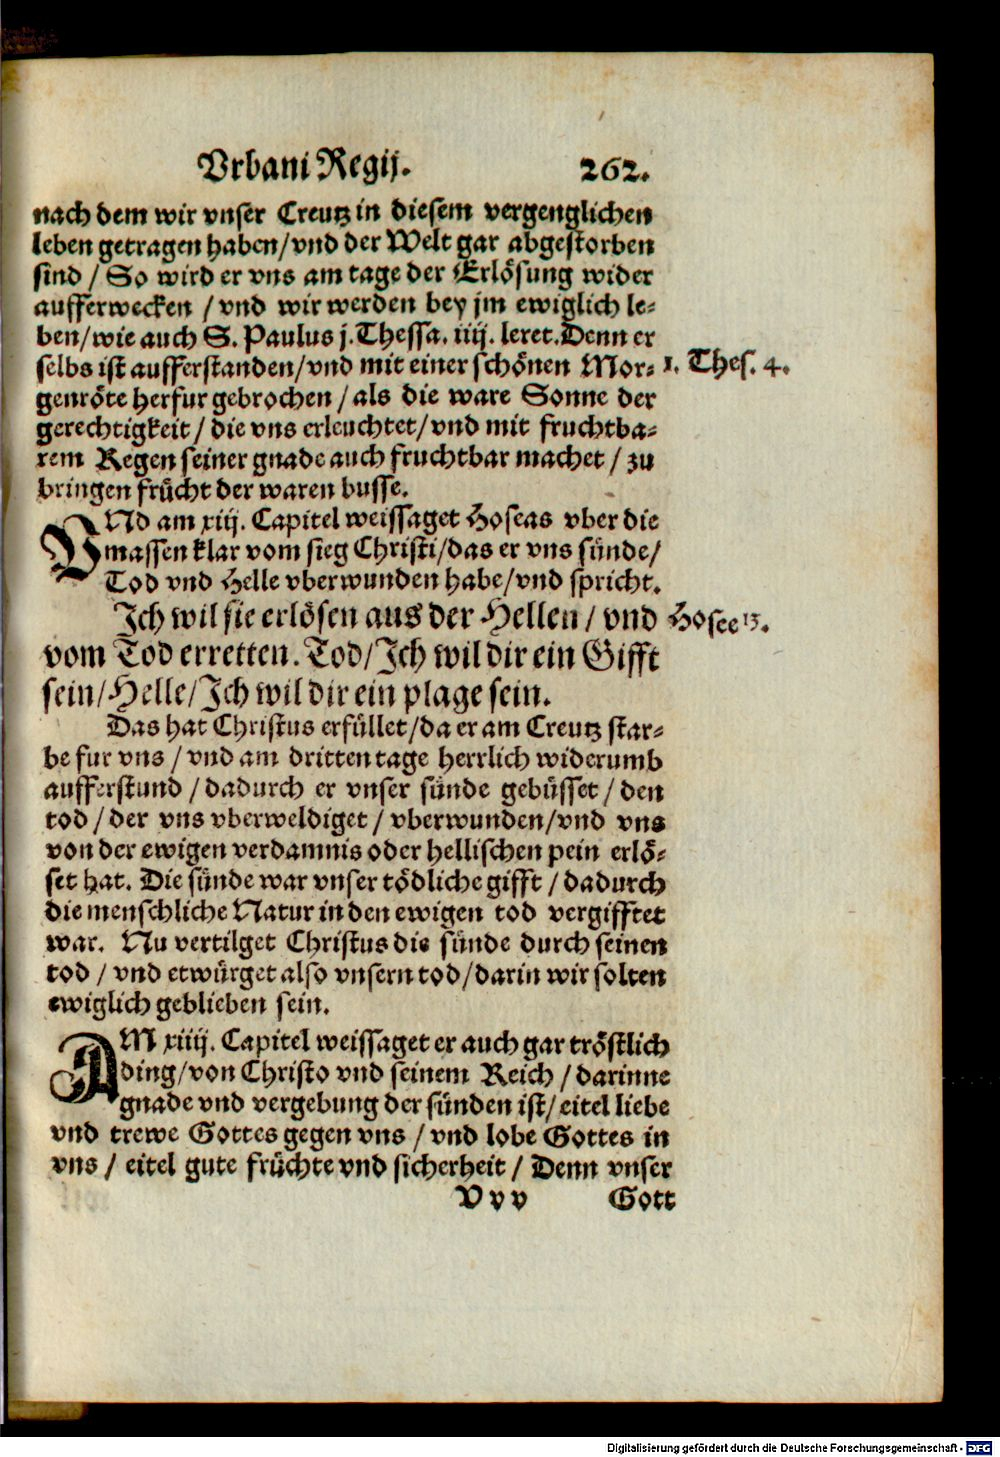 Vrbani Regij. 262.
nach dem wir vnser Creutz in diesem vergenglichen
leben getragen haben/vnd der Welt gar abgestorben
sind / So wird er vns am tage der Erlösung wider
aufferwecken / vnd wir werden bey jm ewiglich le-
ben/wie auch S. Paulus j. Thessa. iiij. leret. Denn er
selbs ist aufferstanden/vnd mit einer schönen Mor- 1. Thes. 4.
genröte herfur gebrochen / als die ware Sonne der
gerechtigkeit / die vns erleuchtet/vnd mit fruchtba-
rem Regen seiner gnade auch fruchtbar machet / zu
bringen frücht der waren busse.
VNd am xiij. Capitel weissaget Hoseas vber die
massen klar vom sieg Christi/das er vns sünde/
Tod vnd Helle vberwunden habe/vnd spricht.
Ich wil sie erlösen aus der Hellen / vnd Hosee 13.
vom Tod erretten. Tod/Ich wil dir ein Gifft
sein/Helle/Ich wil dir ein plage sein.
Das hat Christus erfüllet/da er am Creutz star-
be fur vns / vnd am dritten tage herrlich widerumb
aufferstund / dadurch er vnser sünde gebüsset / den
tod / der vns vberweldiget / vberwunden/vnd vns
von der ewigen verdamnis oder hellischen pein erlö-
set hat. Die sünde war vnser tödliche gifft / dadurch
die menschliche Natur in den ewigen tod vergifftet
war. Nu vertilget Christus die sünde durch seinen
tod / vnd etwürget also vnsern tod/darin wir solten
ewiglich geblieben sein.
AM xiiij. Capitel weissaget er auch gar tröstlich
ding/von Christo vnd seinem Reich / darinne
gnade vnd vergebung der sünden ist/eitel liebe
vnd trewe Gottes gegen vns / vnd lobe Gottes in
vns / eitel gute früchte vnd sicherheit / Denn vnser
V v v Gott
Digitalisierung gefördert durch die Deutsche Forschungsgemeinschaft - DFG